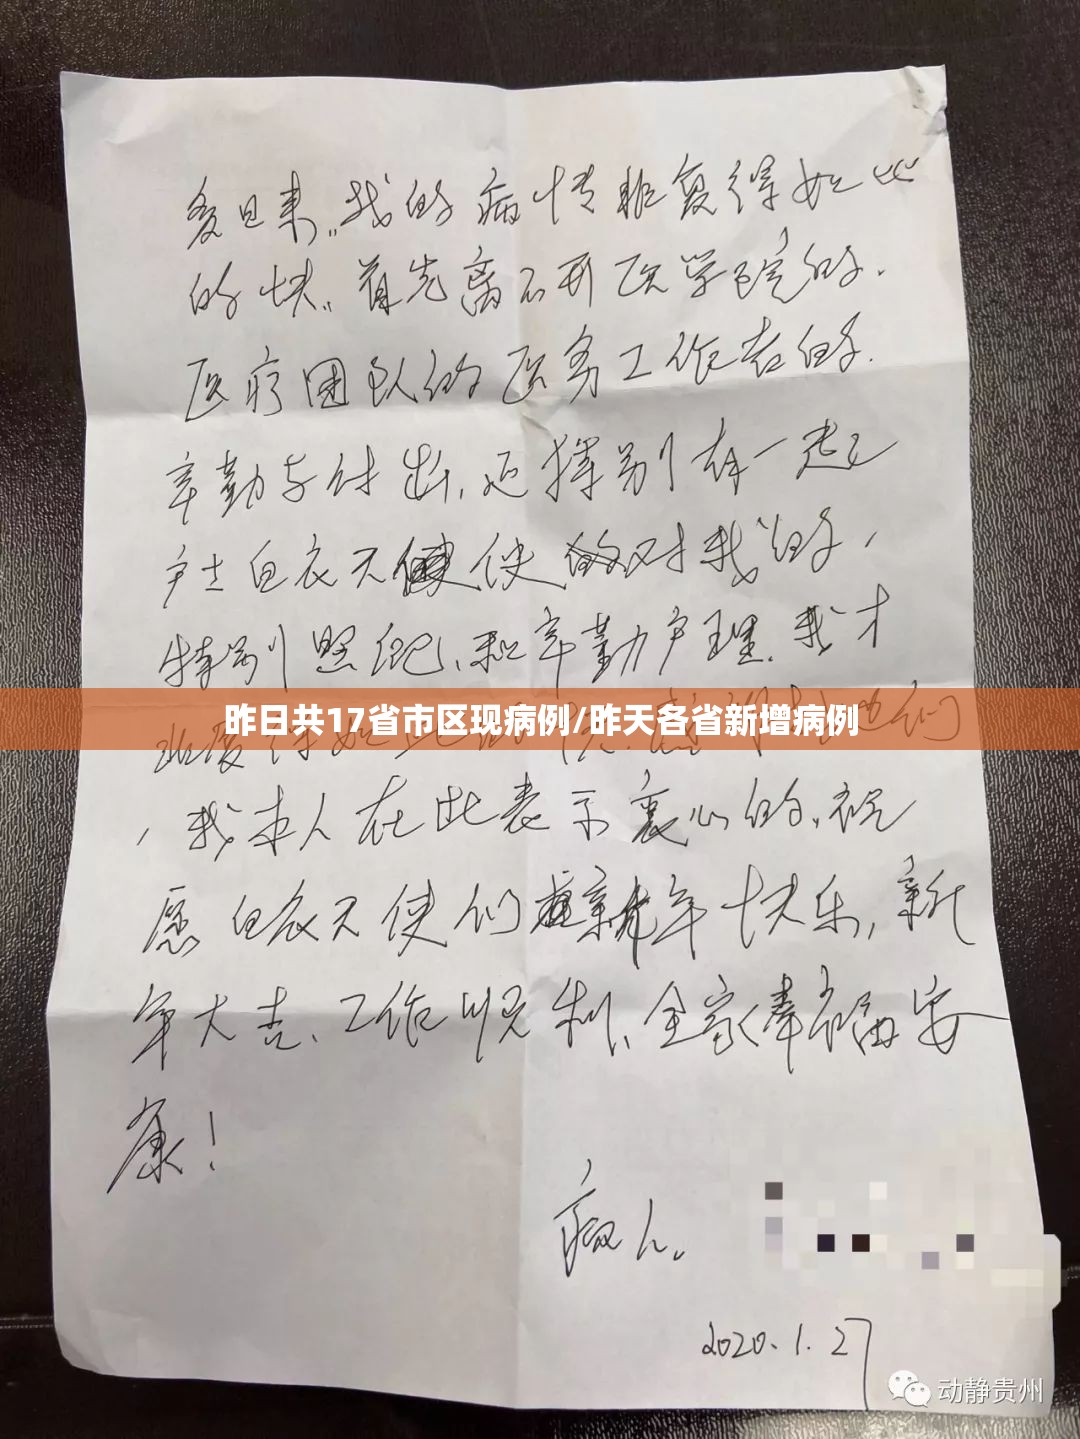 多日来，我的病情能复得如此
的快，首先离不开医学院的.
医疗团队的医务工作者的.
辛勤与付出，还择别有一起
户士白衣天使的对我的，
特别照纪、和辛勤户理. 我才
昨日共17省市区现病例/昨天各省新增病例
，我本人在此表示衷心的，祝
愿白衣天使们新年快乐，新
年大吉、工作顺利、全家幸福安
康！
病人.
2020.1.27
动静贵州